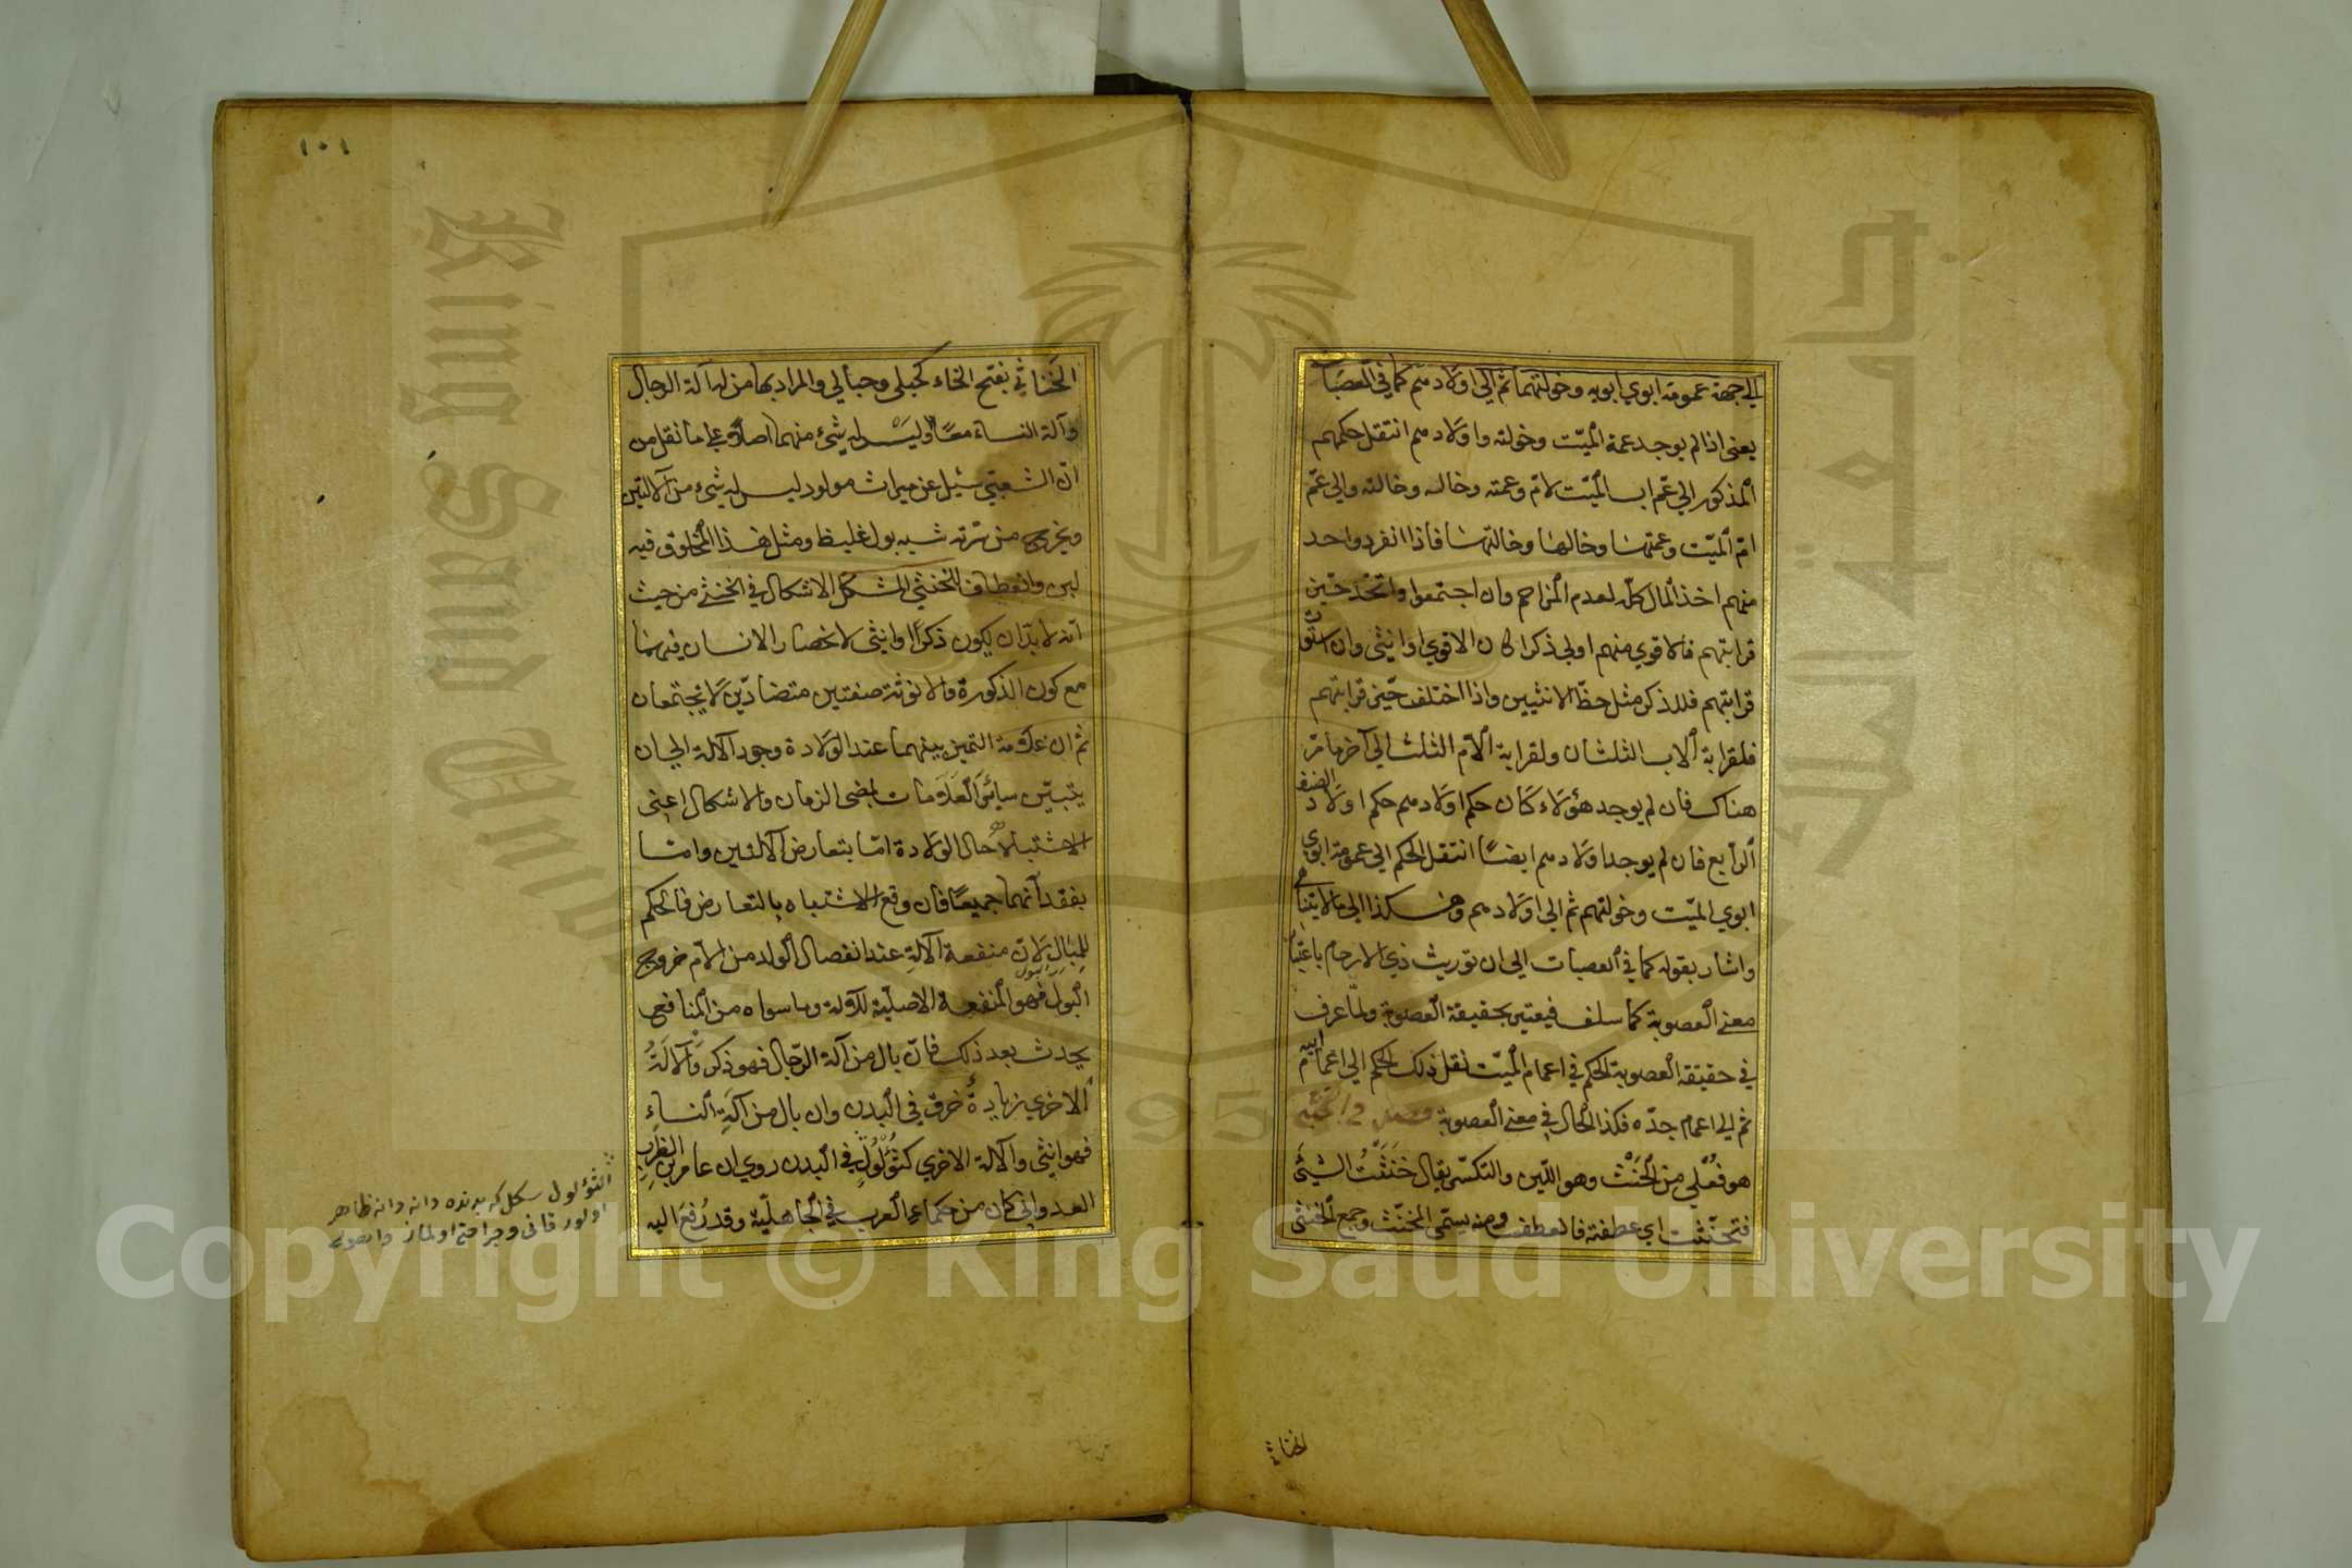 الي جهة عمومة ابوي ابويه وخولتهما ثم الي اولادهم كما في العصبات
يعني اذا لم يوجد عمة الميّت وخولته واولادهم انتقل حكمهم
المذكور الي عمّ اب الميّت لامّ وعمته وخاله وخالته والي عمّ
امّ الميّت وعمتها وخالها وخالتها فاذا انفرد واحد
منهم اخذ المال كلّه لعدم المزاحم وان اجتمعوا واتحد حيّز
قرابتهم فالاقوي منهم اولي ذكرا كان الاقوي او انثي وان استوت
قرابتهم فللذكر مثل حظّ الانثيين واذا اختلف حيّز قرابتهم
فلقرابة الاب الثلثان ولقرابة الامّ الثلث الي آخر ما مرّ
هناك فان لم يوجد هؤلاء كان حكم اولادهم حكم اولاد الصنف
الرابع فان لم يوجد اولادهم ايضًا انتقل الحكم الي عمومة ابوي
ابوي الميّت وخولتهم ثم الي اولادهم وهكذا الي ما لا يتناهي
واشار بقوله كما في العصبات الي ان توريث ذي الارحام باعتبار
معني العصوبة كما سلف فيعتبر بحقيقة العصوبة ولمّا عرف
في حقيقة العصوبة الحكم في اعمام الميّت نقل ذلك الحكم الي اعمام ابيه
ثم الي اعمام جدّه فكذا الحال في معني العصوبة فصل في الخنثي
هو فُعْلي من الخَنْث وهو اللّين والتكسّر يقال خَنَثْتُ الشيئ
فتخنّثت اي عطفته فانعطف ومنه يسمّي المخنّث وجمع الخنثي
الخناثي
١٠١
الخَناثي بفتح الخاء كحبلي وحبالي والمراد بها من له آلة الرجال
وآلة النساء معًا وليس له شيئ منهما اصلاً علي ما نقل من
انّ الشعبيّ سُئل عن ميراث مولود ليس له شيئ من الآلتين
ويخرج من سرّته شبه بول غليظ ومثل هذا المخلوق فيه
لين وانعطاف الخنثي المشكل الاشكال في الخنثي من حيث
انه لا بدّ ان يكون ذكرًا او انثي لانحصار الانسان فيهما
مع كون الذكورة والانوثة صفتين متضادّين لا يجتمعان
ثم ان علامة التميز بينهما عند الولادة وجود الآلة الي ان
يتبيّن سائر العلامات بمضي الزمان والاشكال اعني
الاشتباه حال الولادة امّا بتعارض الآلتين وامّا
بفقدانهما جميعًا فان وقع الاشتباه بالتعارض فالحكم
للمبال لانّ منفعة الآلةِ عند انفصال الولد من الامّ خروج
البول فهو المنفعة الاصليّة للآلة وما سواه من المنافع
يحدث بعد ذلك فانّ بال من آلة الرّجال فهو ذكر والآلةُ
الاخري زيادةُ خرق في البدن وان بال من آلةِ النساءِ
فهو انثي والآلة الاخري كثُؤْلُولٍ في البدن روي ان عامر بن الظرب
العدواني كان من حكماء العرب في الجاهليّة وقد رُفعَ اليه
الثؤلول شكل كه بدنده دانه دانه ظاهر
اولور قانى وجراحتى اولماز